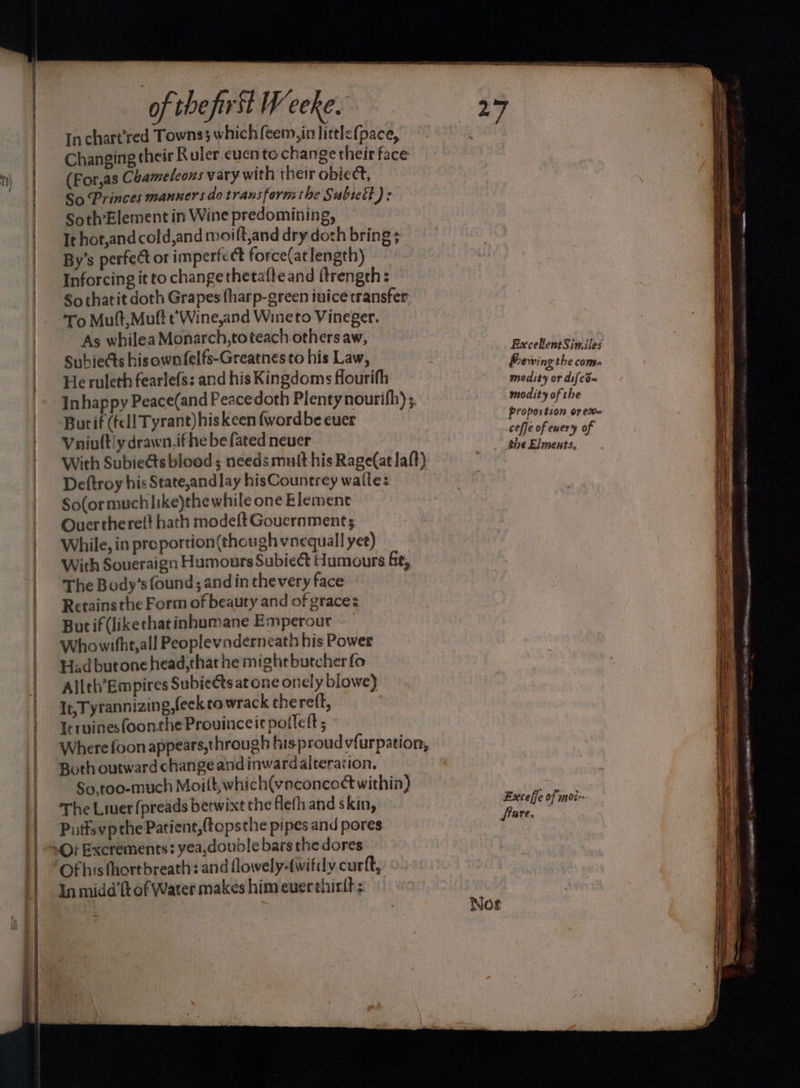 of the first Weeke. 27
In chart'red Towns; which seem, in little space,
Changing their Ruler, euen to change their face
(For, as Chameleons vary with their obiect,
So Princes manners do transforme the Subiect):
So th'Element in Wine predomining,
It hot, and cold, and moist, and dry doth bring;
By's perfect or imperfect force (at length)
Inforcing it to change the taste and strength:
So that it doth Grapes sharp-green iuice transfer
To Must, Must t'Wine, and Wine to Vineger.
As while a Monarch, to teach others aw,
Subiects his own selfs-Greatnes to his Law,
He ruleth fearless: and his Kingdoms flourish
In happy Peace (and Peace doth Plenty nourish);
But if (fell Tyrant) his keen sword be euer
Vniustly drawn, if he be sated neuer
With Subiects blood; needs must his Rage (at last)
Destroy his State, and lay his Countrey waste:
So (or much like) the while one Element
Ouer the rest hath modest Gouernment;
While, in proportion (though vnequall yet)
With Soueraign Humours Subiect Humours fit,
The Body's sound; and in the very face
Retains the Form of beauty and of grace:
But if (like that inhumane Emperour
Who wisht, all People vnderneath his Power
Had but one head, that he might butcher so
All th'Empires Subiects at one onely blowe)
It, Tyrannizing, seek to wrack the rest,
It ruines soon the Prouince it possest;
Where soon appears, through his proud vsurpation,
Both outward change and inward alteration.
So, too-much Moist, which (vnconcoct within)
The Liuer spreads betwixt the flesh and skin,
Puffs vp the Patient, stops the pipes and pores
Of Excrements: yea, double bars the dores
Of his short breath: and slowely-swiftly curst,
In midd'st of Water makes him euer thirst:
Not
Excellent Similes
shewing the com-
modity or discõ-
modity of the
proportion or ex-
cesse of euery of
the Elments.
Excesse of moi-
sture.